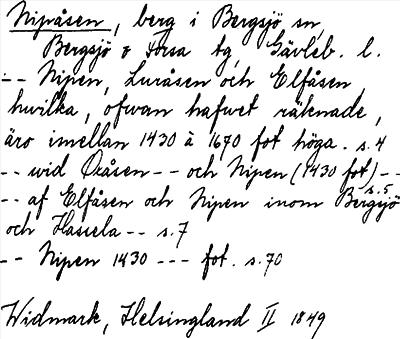 Nipåsen, berg i Bergsjö sn
Bergsjö o Forsa tg, Gävleb. l.
-- Nipen, Luråsen och Elfåsen
hwilka, ofwan hafwet räknade,
äro imellan 1430 à 1670 fot höga. s.4
-- wid Oxåsen -- och Nipen (1430 fot) -- s.5
-- af Elfåsen och Nipen inom Bergsjö
och Hassela -- s.7
-- Nipen 1430 --- fot. s.70
Widmark, Helsingland II 1849